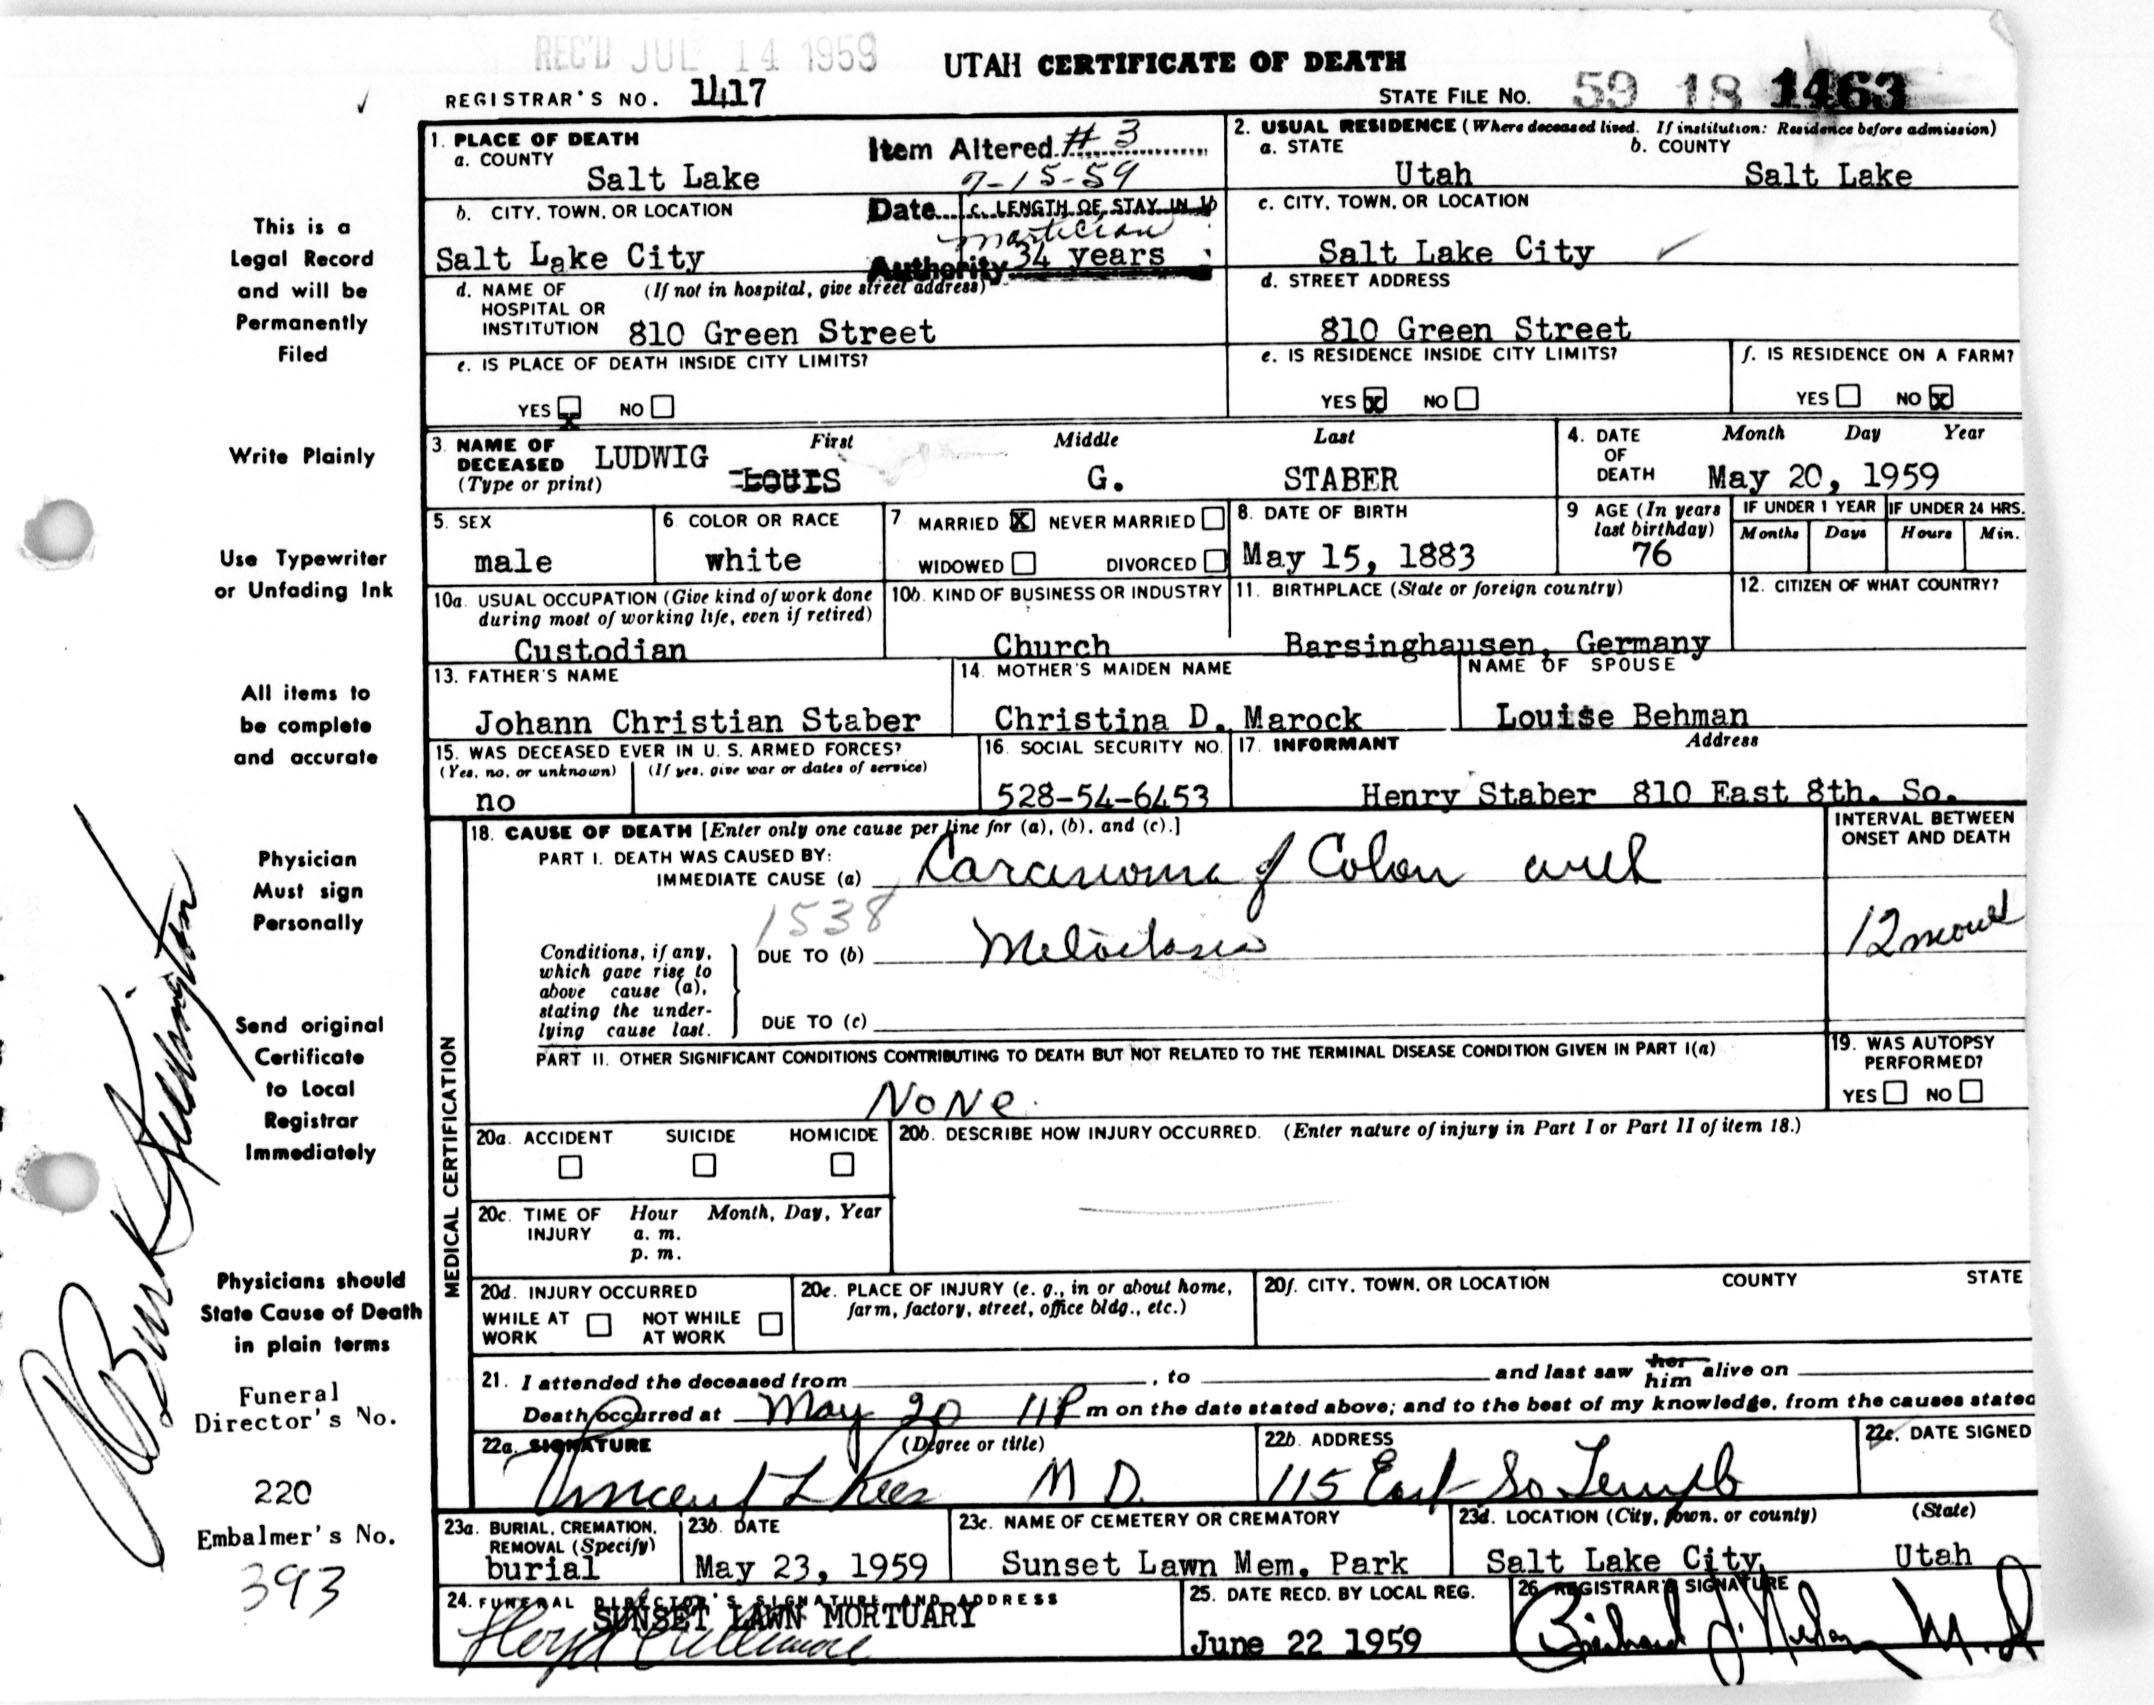 REC'D JUL 14 1959
UTAH CERTIFICATE OF DEATH
REGISTRAR'S NO. 1417
STATE FILE NO. 59 18 1463
1. PLACE OF DEATH
a. COUNTY
Salt Lake
Item Altered # 3
7-15-59
2. USUAL RESIDENCE (Where deceased lived. If institution: Residence before admission)
a. STATE b. COUNTY
Utah Salt Lake
b. CITY, TOWN, OR LOCATION
Salt Lake City
Date
c. LENGTH OF STAY IN 1b
mortician
Authority
34 years
c. CITY, TOWN, OR LOCATION
Salt Lake City
d. NAME OF HOSPITAL OR INSTITUTION (If not in hospital, give street address)
810 Green Street
d. STREET ADDRESS
810 Green Street
e. IS PLACE OF DEATH INSIDE CITY LIMITS?
YES x NO
e. IS RESIDENCE INSIDE CITY LIMITS?
YES x NO
f. IS RESIDENCE ON A FARM?
YES NO x
3. NAME OF DECEASED (Type or print)
First Middle Last
LUDWIG
LOUIS G. STABER
4. DATE OF DEATH Month Day Year
May 20, 1959
5. SEX
male
6. COLOR OR RACE
white
7. MARRIED X NEVER MARRIED
WIDOWED DIVORCED
8. DATE OF BIRTH
May 15, 1883
9 AGE (In years last birthday)
76
IF UNDER 1 YEAR IF UNDER 24 HRS.
Months Days Hours Min.
10a. USUAL OCCUPATION (Give kind of work done during most of working life, even if retired)
Custodian
10b. KIND OF BUSINESS OR INDUSTRY
Church
11. BIRTHPLACE (State or foreign country)
Barsinghausen, Germany
12. CITIZEN OF WHAT COUNTRY?
13. FATHER'S NAME
Johann Christian Staber
14. MOTHER'S MAIDEN NAME
Christina D. Marock
NAME OF SPOUSE
Louise Behman
15. WAS DECEASED EVER IN U. S. ARMED FORCES?
(Yes, no, or unknown) (If yes, give war or dates of service)
no
16. SOCIAL SECURITY NO.
528-54-6453
17. INFORMANT Address
Henry Staber 810 East 8th. So.
MEDICAL CERTIFICATION
18. CAUSE OF DEATH [Enter only one cause per line for (a), (b), and (c).]
INTERVAL BETWEEN ONSET AND DEATH
PART I. DEATH WAS CAUSED BY:
IMMEDIATE CAUSE (a) Carcinoma of Colon with
1538
Conditions, if any, which gave rise to above cause (a), stating the underlying cause last.
DUE TO (b) Metastasis
12 mont
DUE TO (c)
PART II. OTHER SIGNIFICANT CONDITIONS CONTRIBUTING TO DEATH BUT NOT RELATED TO THE TERMINAL DISEASE CONDITION GIVEN IN PART I(a)
None.
19. WAS AUTOPSY PERFORMED?
YES NO
20a. ACCIDENT SUICIDE HOMICIDE
20b. DESCRIBE HOW INJURY OCCURRED. (Enter nature of injury in Part I or Part II of item 18.)
20c. TIME OF INJURY Hour Month, Day, Year
a. m.
p. m.
20d. INJURY OCCURRED
WHILE AT WORK NOT WHILE AT WORK
20e. PLACE OF INJURY (e. g., in or about home, farm, factory, street, office bldg., etc.)
20f. CITY, TOWN, OR LOCATION COUNTY STATE
21. I attended the deceased from , to and last saw her him alive on
Death occurred at May 20 11P m on the date stated above; and to the best of my knowledge, from the causes stated
22a. SIGNATURE (Degree or title)
Vincent L Rees M D.
22b. ADDRESS
115 East So Temple
22c. DATE SIGNED
23a. BURIAL, CREMATION, REMOVAL (Specify)
burial
23b. DATE
May 23, 1959
23c. NAME OF CEMETERY OR CREMATORY
Sunset Lawn Mem. Park
23d. LOCATION (City, town, or county) (State)
Salt Lake City, Utah
24. FUNERAL DIRECTOR'S SIGNATURE AND ADDRESS
SUNSET LAWN MORTUARY
Floyd
25. DATE RECD. BY LOCAL REG.
June 22 1959
26. REGISTRAR'S SIGNATURE
Richard J. Nelson M.D
This is a
Legal Record
and will be
Permanently
Filed
Write Plainly
Use Typewriter
or Unfading Ink
All items to
be complete
and accurate
Physician
Must sign
Personally
Send original
Certificate
to Local
Registrar
Immediately
Physicians should
State Cause of Death
in plain terms
Funeral
Director's No.
220
Embalmer's No.
393